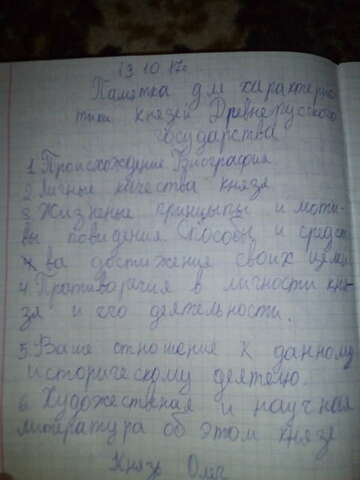 13.10.17г.
Памятка для характерис
тики князей Древнерусского
государства
1. Происхождение Биография
2. Личные качества князя
3. Жизненые принцыпы и моти-
вы поведения Способы и средст
ва достижение своих целей
4. Противоречия в личности кня-
зя и его деятельности.
5. Ваше отношение к данному
историческому деятелю.
6. Художественая и научная
литература об этом князе
Князь Олег